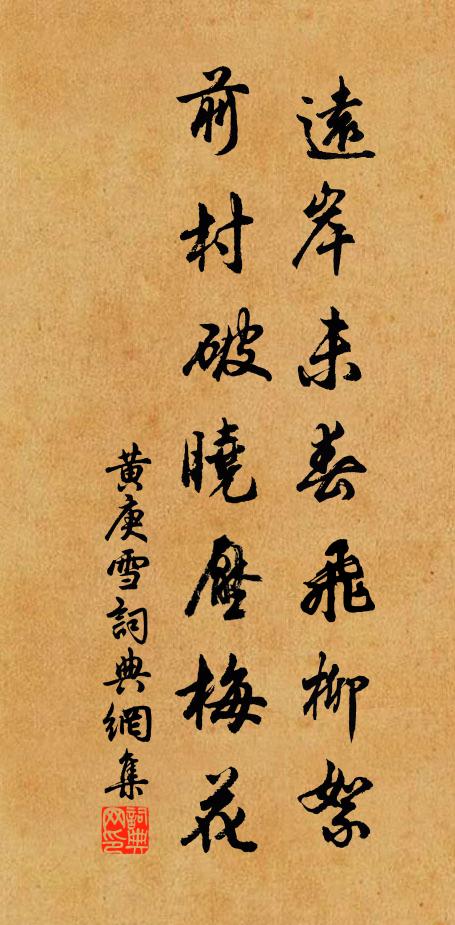 遠岸未春飛柳絮
前村破曉壓梅花
黃庚雪詞典網集
詞典網印